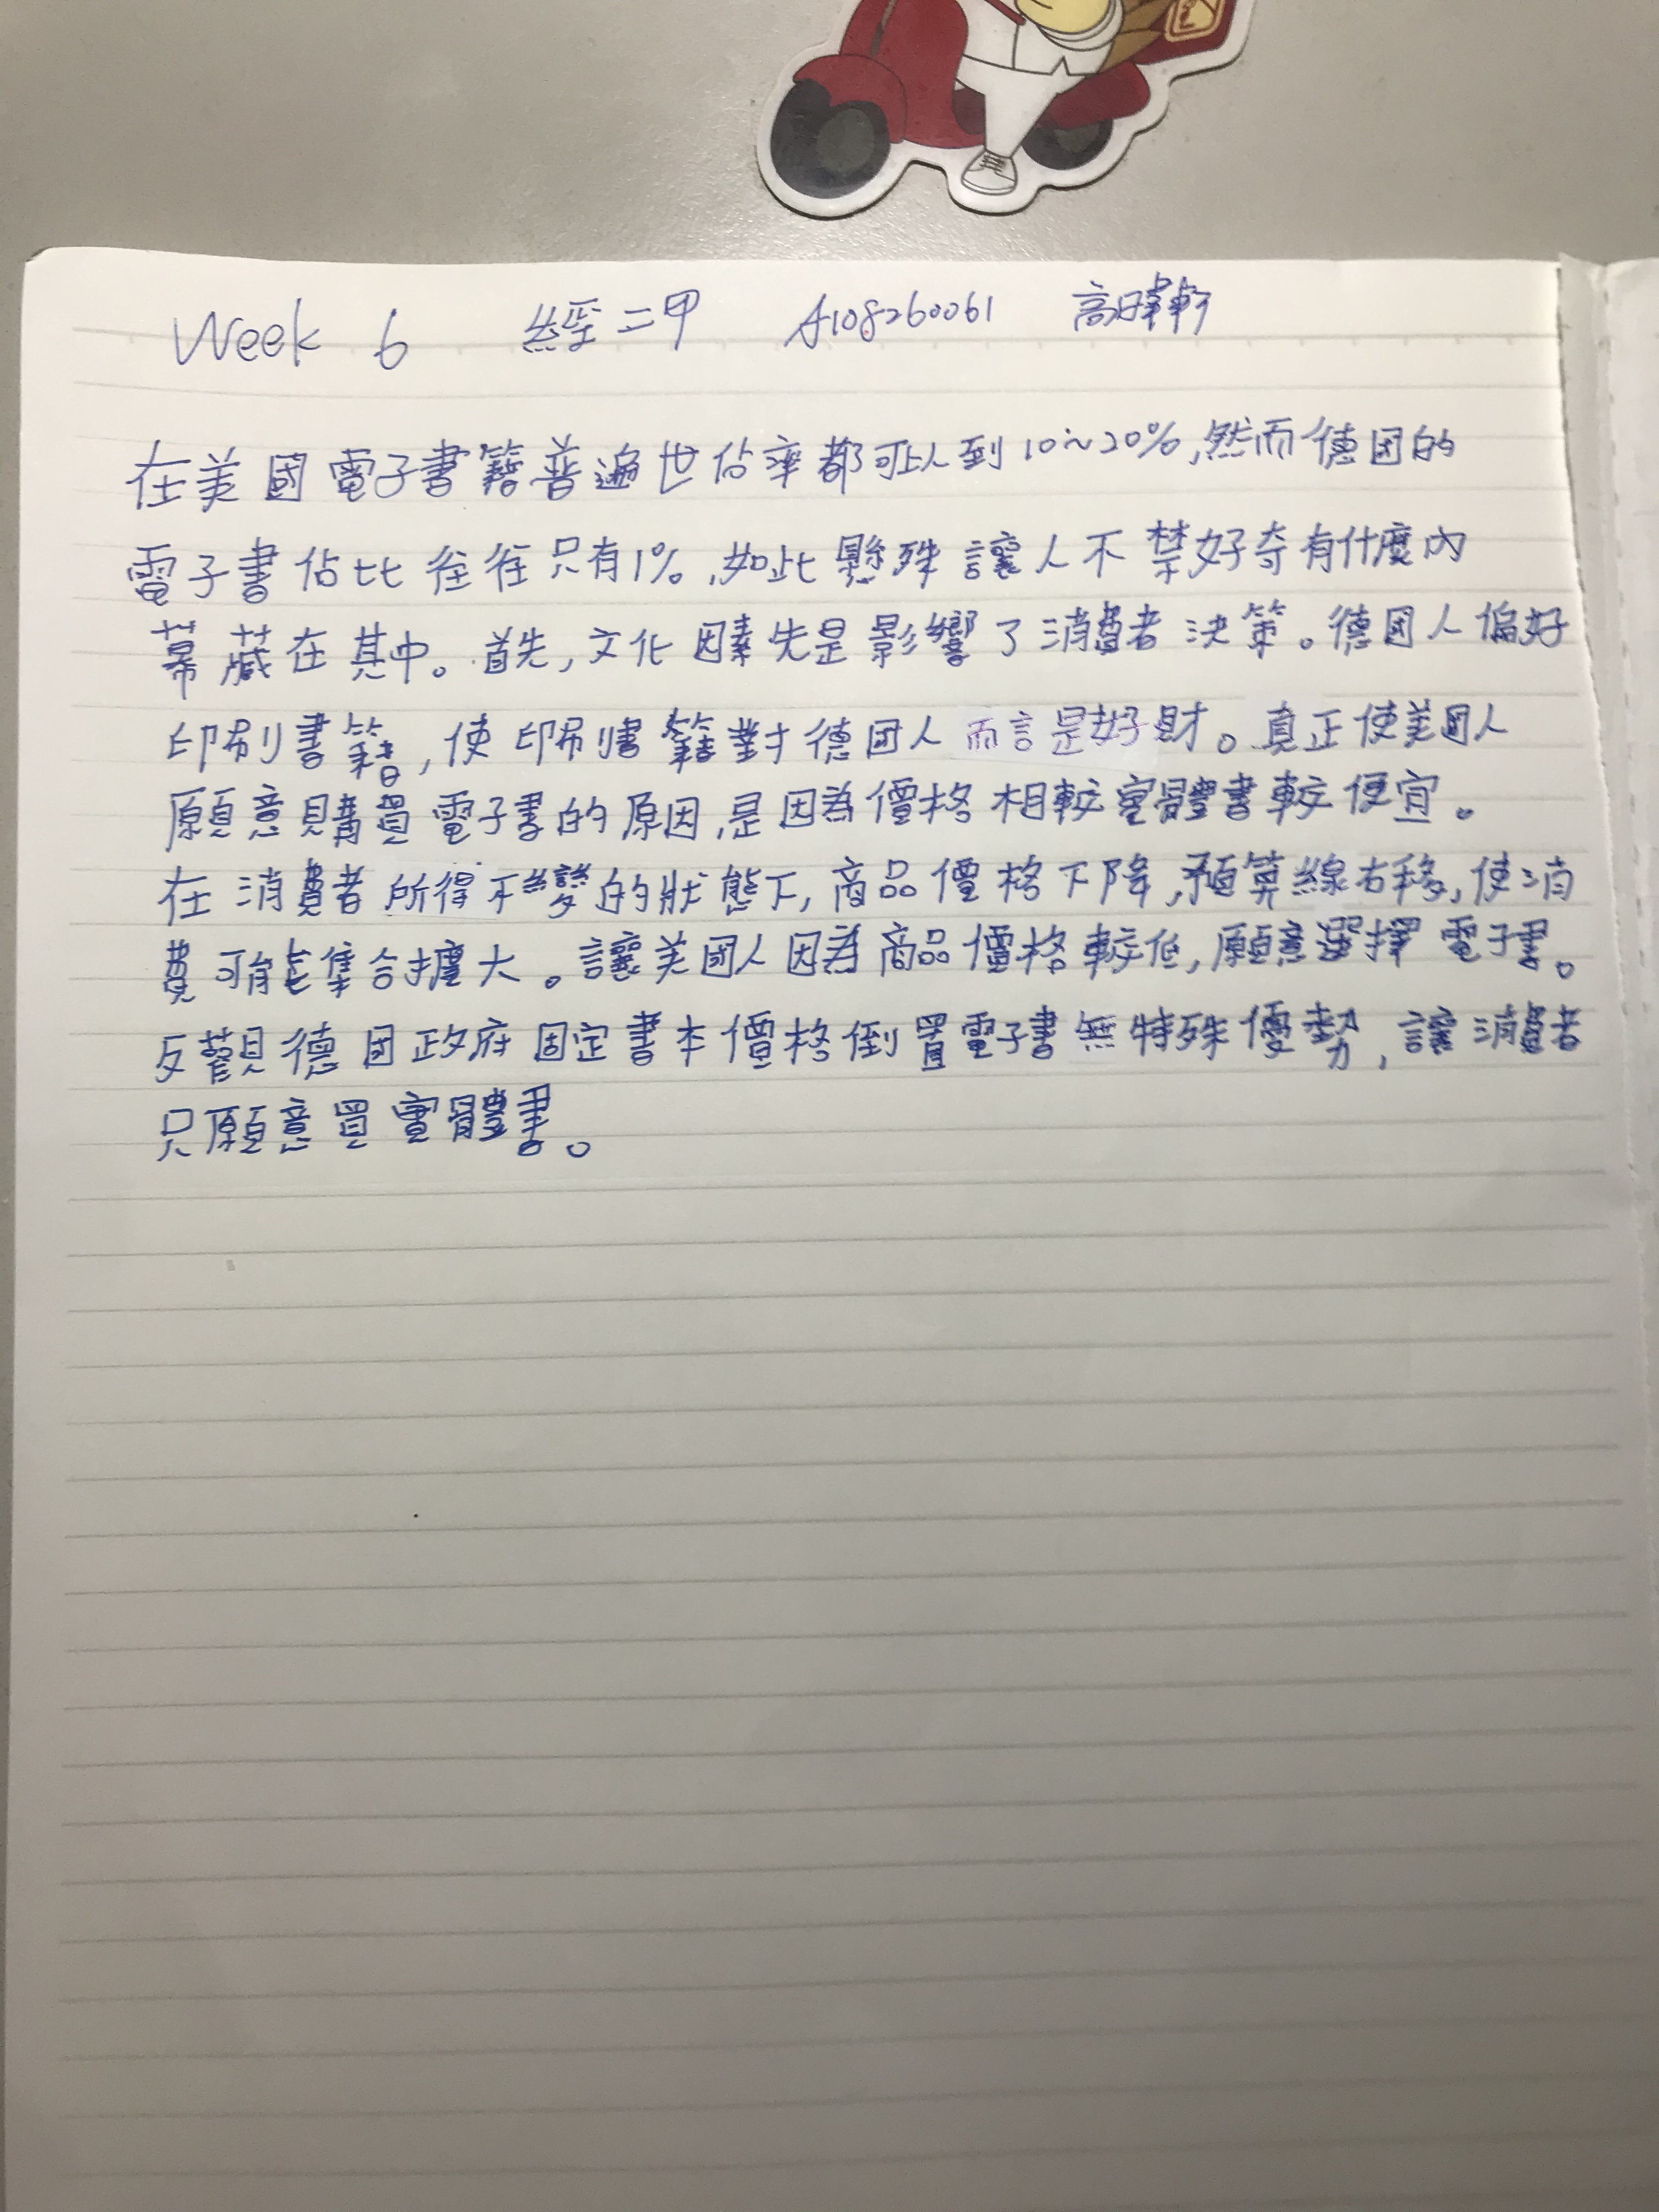 Week 6 經二甲 A108260061 高暐軒
在美國電子書籍普遍世佔率都可以到10~20%,然而德国的
電子書佔比往往只有1%。,如此懸殊讓人不禁好奇有什麼內
幕藏在其中。首先,文化因素先是影響了消費者決策。德國人偏好
印刷書籍,使印刷書籍對德国人而言是好財。真正使美國人
願意購買電子書的原因,是因為價格相較實體書較便宜。
在消費者所得不變的狀態下,商品價格下降,預算線右移,使消
費可能集合擴大。讓美國人因為商品價格較低,願意選擇電子書。
反觀德国政府固定書本價格倒置電子書無特殊優勢,讓消費者
只願意買實體書。